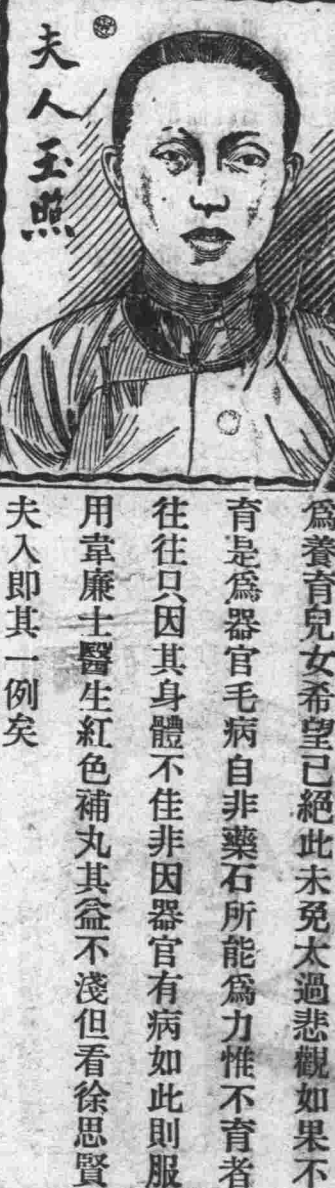 夫人玉照
爲養育兒女希望已絕此未免太過悲觀如果不
育是爲器官毛病自非藥石所能爲力惟不育者
往往只因其身體不佳非因器官有病如此則服
用韋廉士醫生紅色補丸其益不淺但看徐思賢
夫入即其一例矣